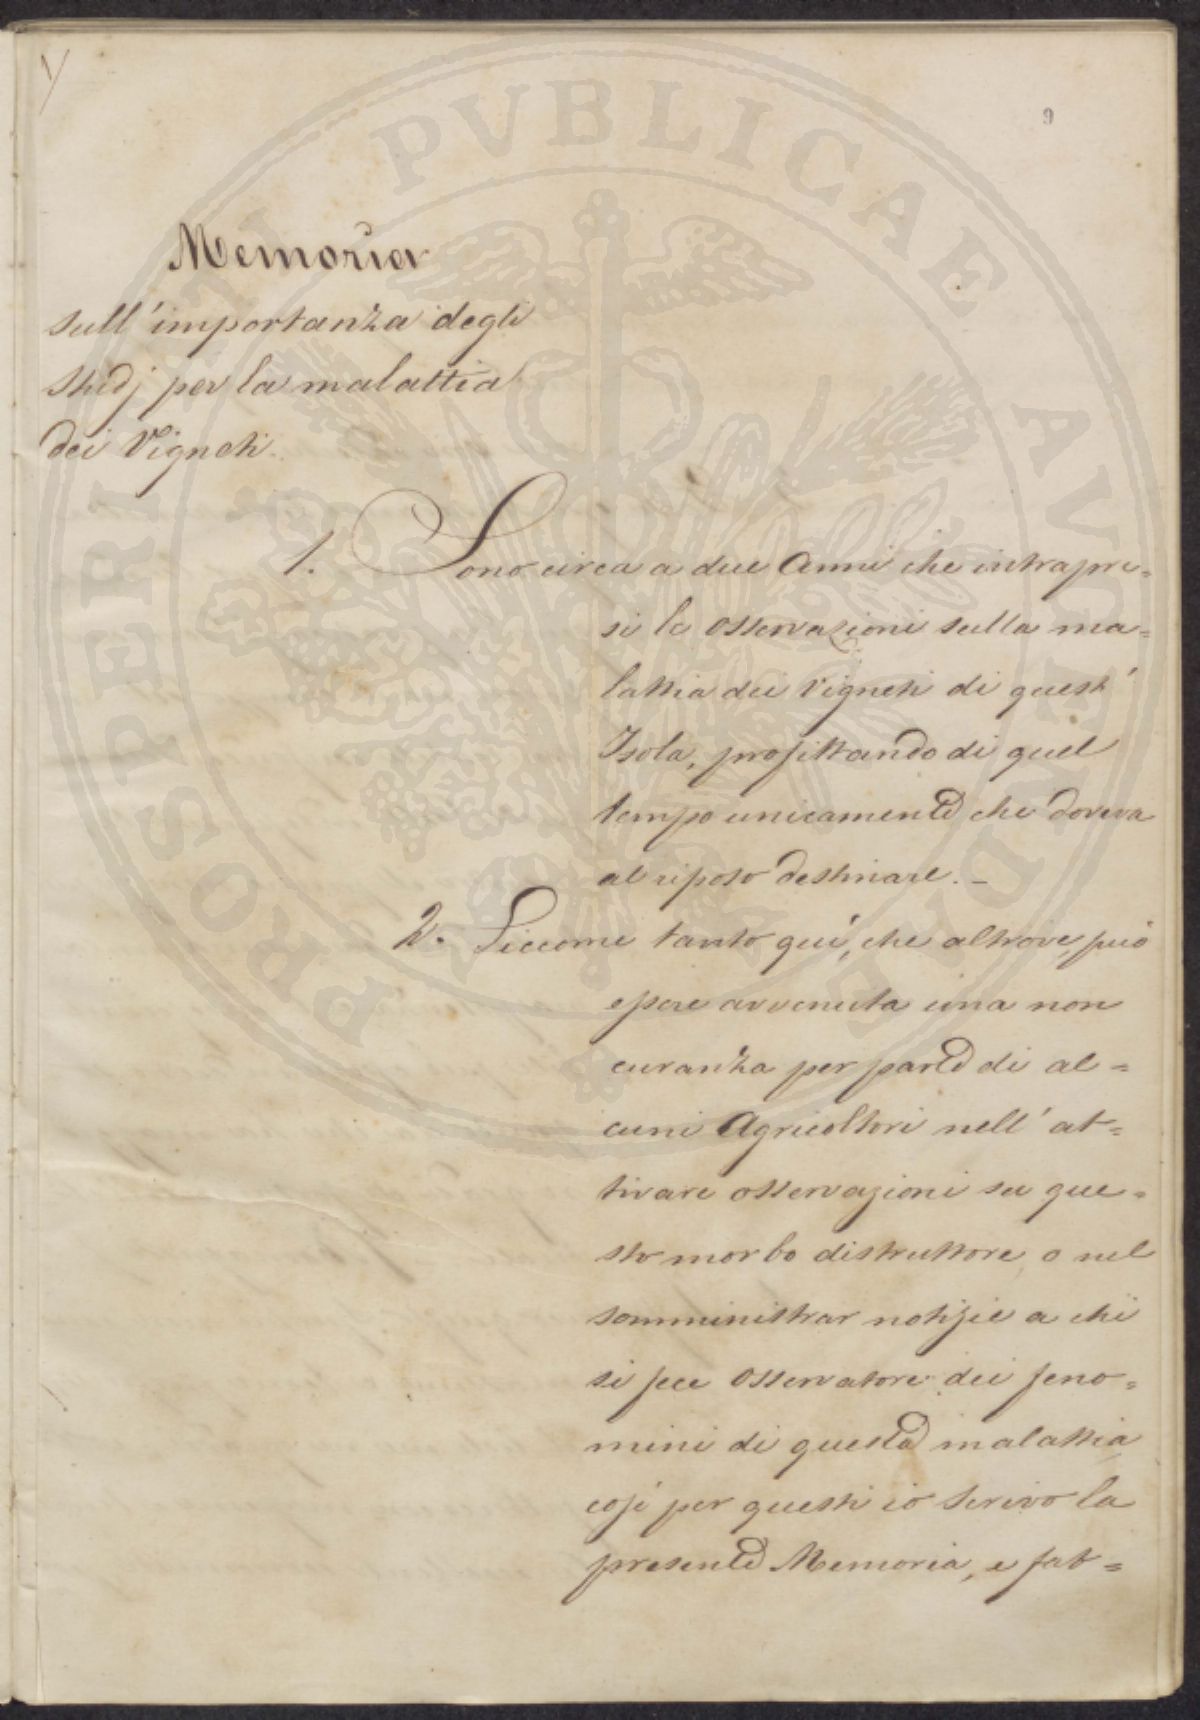 9
Memoria
sull'importanza degli
studj per la malattia
dei Vigneti.
1. Sono circa a due Anni che intrapre=
si le osservazioni sulla ma=
lattia dei Vigneti di quest'
Isola, profittando di quel
tempo unicamente che doveva
al riposo destinare. –
2. Siccome tanto quì, che altrove, può
essere avvenuta una non
curanza per parte di al=
cuni Agricoltori nell'at=
tivare osservazioni su que=
sto morbo distruttore, o nel
somministrar notizie a chi
si fece osservatore dei feno=
mini di questa malattia,
così per questi io scrivo la
presente Memoria, e fat=
PROSPERITATI PVBLICAE AVGENDAE